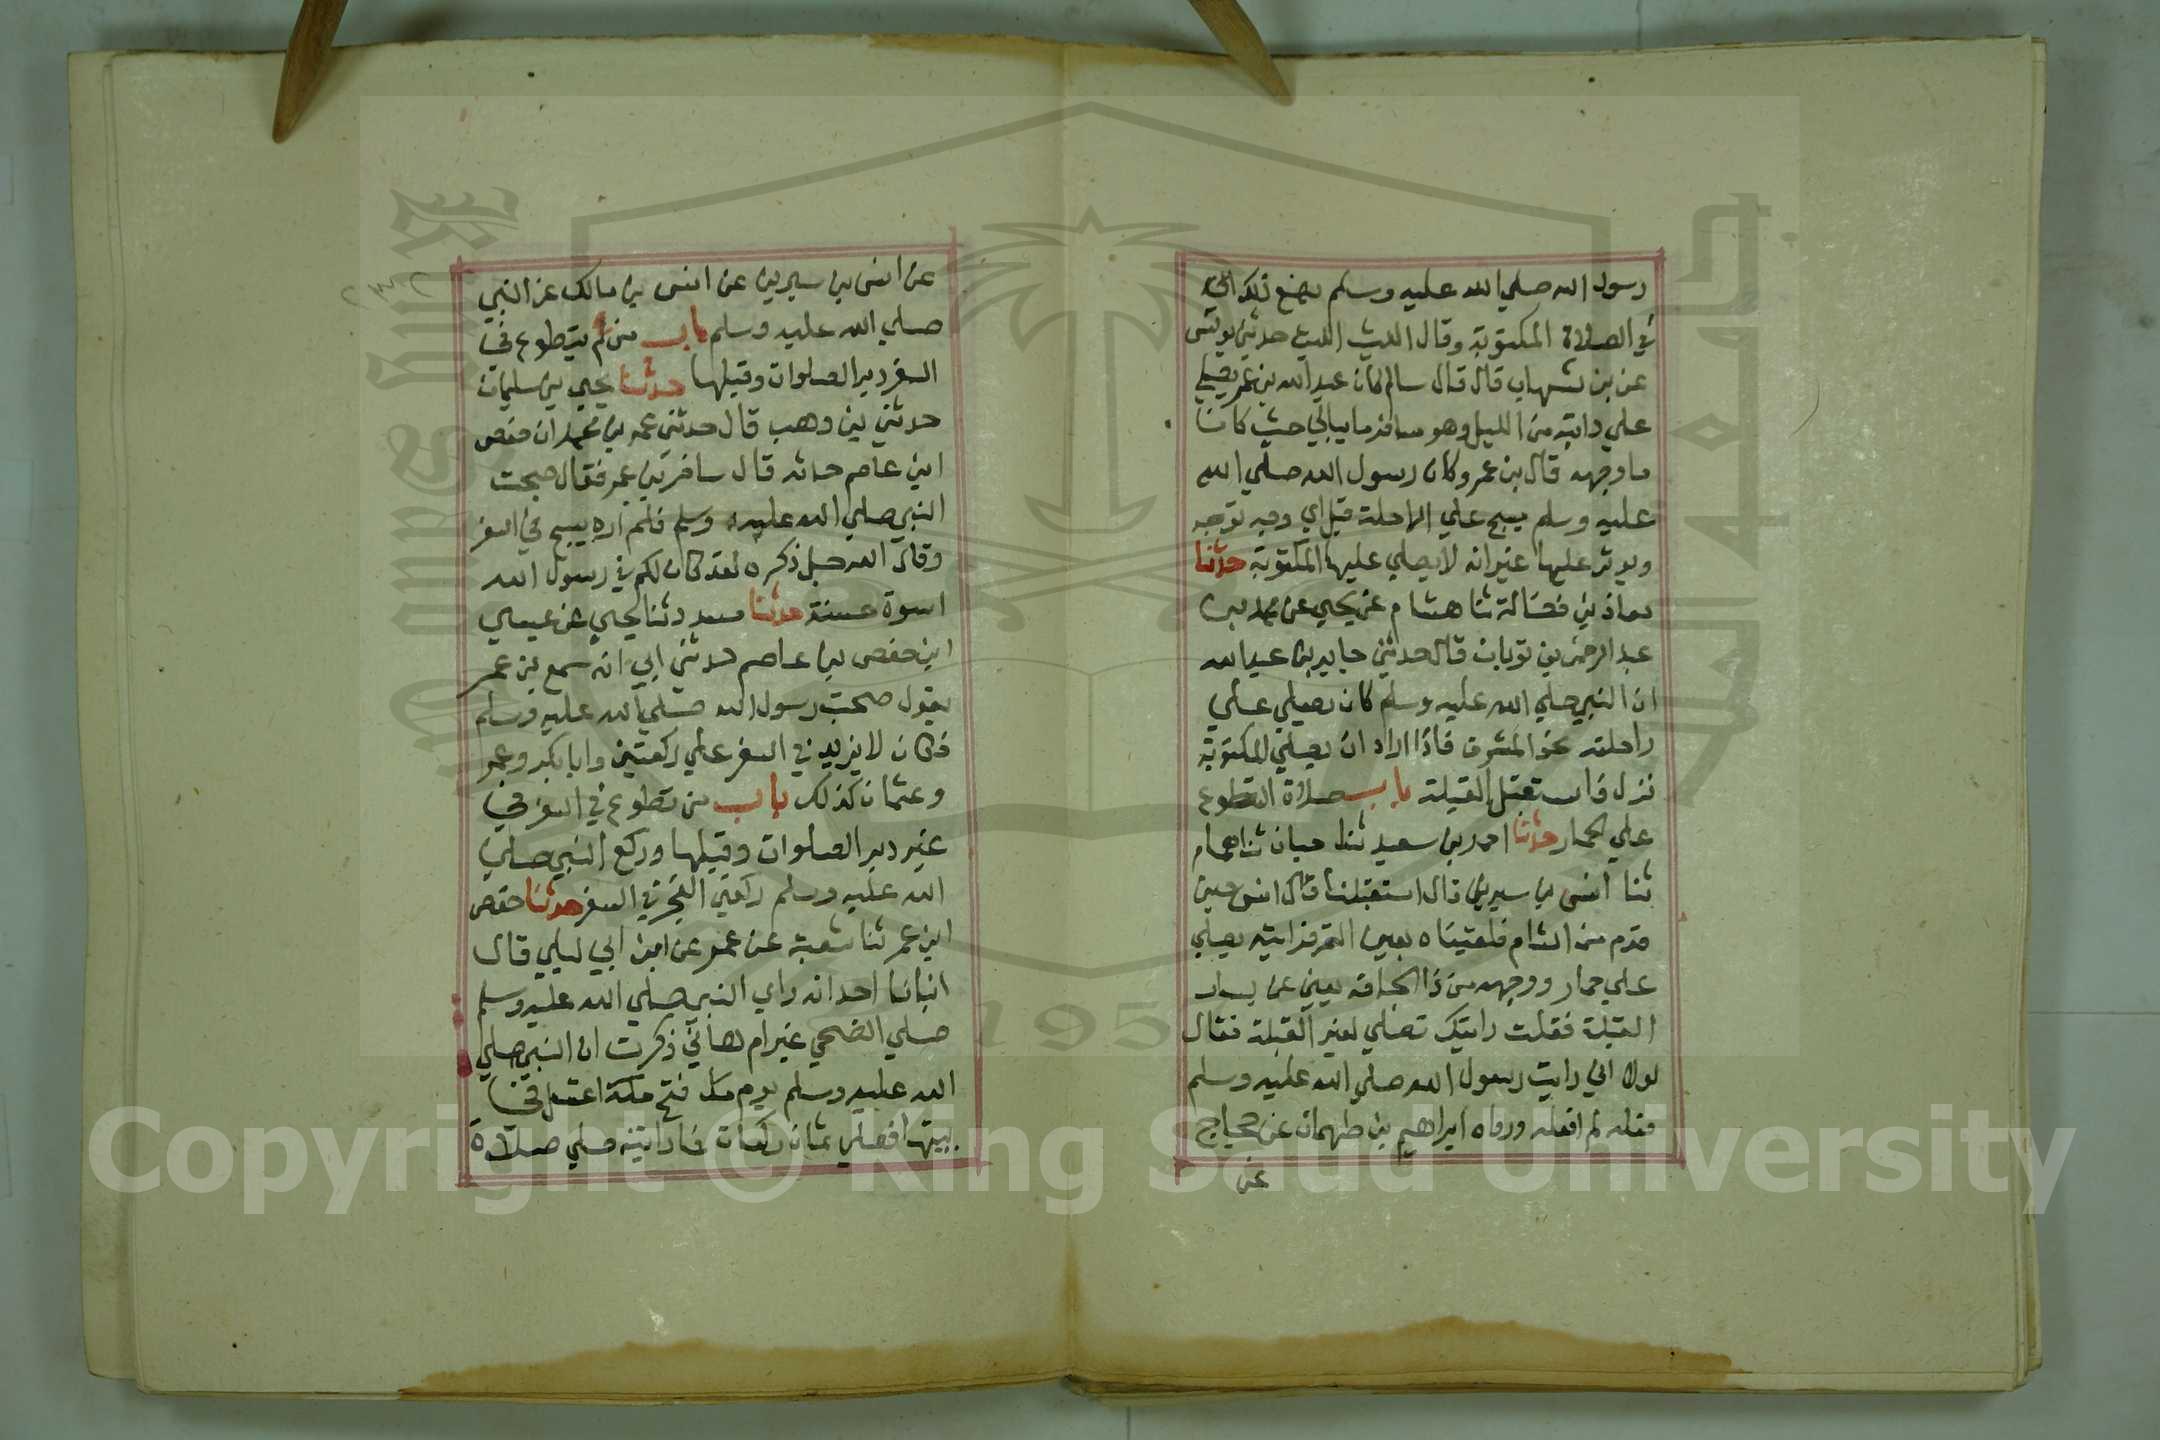 رسول الله صلي الله عليه وسلم يصنع ذلك
في الصلاة المكتوبة وقال الليث حدثني يونس
عن بن شهاب قال قال سالم كان عبد الله بن عمر يصلي
علي دابته من الليل وهو مسافر ما يبالي حيث كان
ما وجهه قال بن عمر وكان رسول الله صلي الله
عليه وسلم يسبح علي الراحلة قبل اي وجه توجه
ويوتر عليها غير انه لا يصلي عليها المكتوبة حدثنا
معاذ بن فضالة ثنا هشام عن يحيي عن محمد بن
عبد الرحمن بن ثوبان قال حدثني جابر بن عبد الله
ان النبي صلي الله عليه وسلم كان يصلي علي
راحلته نحو المشرق فاذا اراد ان يصلي المكتوبة
نزل فاستقبل القبلة باب صلاة التطوع
علي الحمار حدثنا احمد بن سعيد ثنا حبان ثنا همام
ثنا انس بن سيرين قال استقبلنا انس حين
قدم من الشام فلقيناه بعين التمر فرايته يصلي
علي حمار ووجهه من ذا الجانب يعني عن يسار
القبلة فقلت رايتك تصلي لغير القبلة فقال
لولا اني رايت رسول الله صلي الله عليه وسلم
فعله لم افعله ورواه ابراهيم بن طهمان عن حجاج
عن
عن انس بن سيرين عن انس بن مالك عن النبي
صلي الله عليه وسلم باب من لم يتطوع في
السفر دبر الصلوات وقبلها حدثنا يحيي بن سليمان
حدثني بن وهب قال حدثني عمر بن محمد ان حفص
ابن عاصم حدثه قال سافر بن عمر فقال صحبت
النبي صلي الله عليه وسلم فلم اره يسبح في السفر
وقال الله جل ذكره لقد كان لكم في رسول الله
اسوة حسنة حدثنا مسدد ثنا يحيي عن عيسي
ابن حفص بن عاصم حدثني ابي انه سمع بن عمر
يقول صحبت رسول الله صلي الله عليه وسلم
فكان لا يزيد في السفر علي ركعتين وابا بكر وعمر
وعثمان كذلك باب من تطوع في السفر في
غير دبر الصلوات وقبلها وركع النبي صلي
الله عليه وسلم ركعتي الفجر في السفر حدثنا حفص
ابن عمر ثنا شعبة عن عمرو عن ابن ابي ليلي قال
انبانا احد انه راي النبي صلي الله عليه وسلم
صلي الضحي غير ام هاني ذكرت ان النبي صلي
الله عليه وسلم يوم فتح مكة اغتسل في
بيتها فصلي ثمان ركعات فما رايته صلي صلاة
Copyright © King Saud University
1957